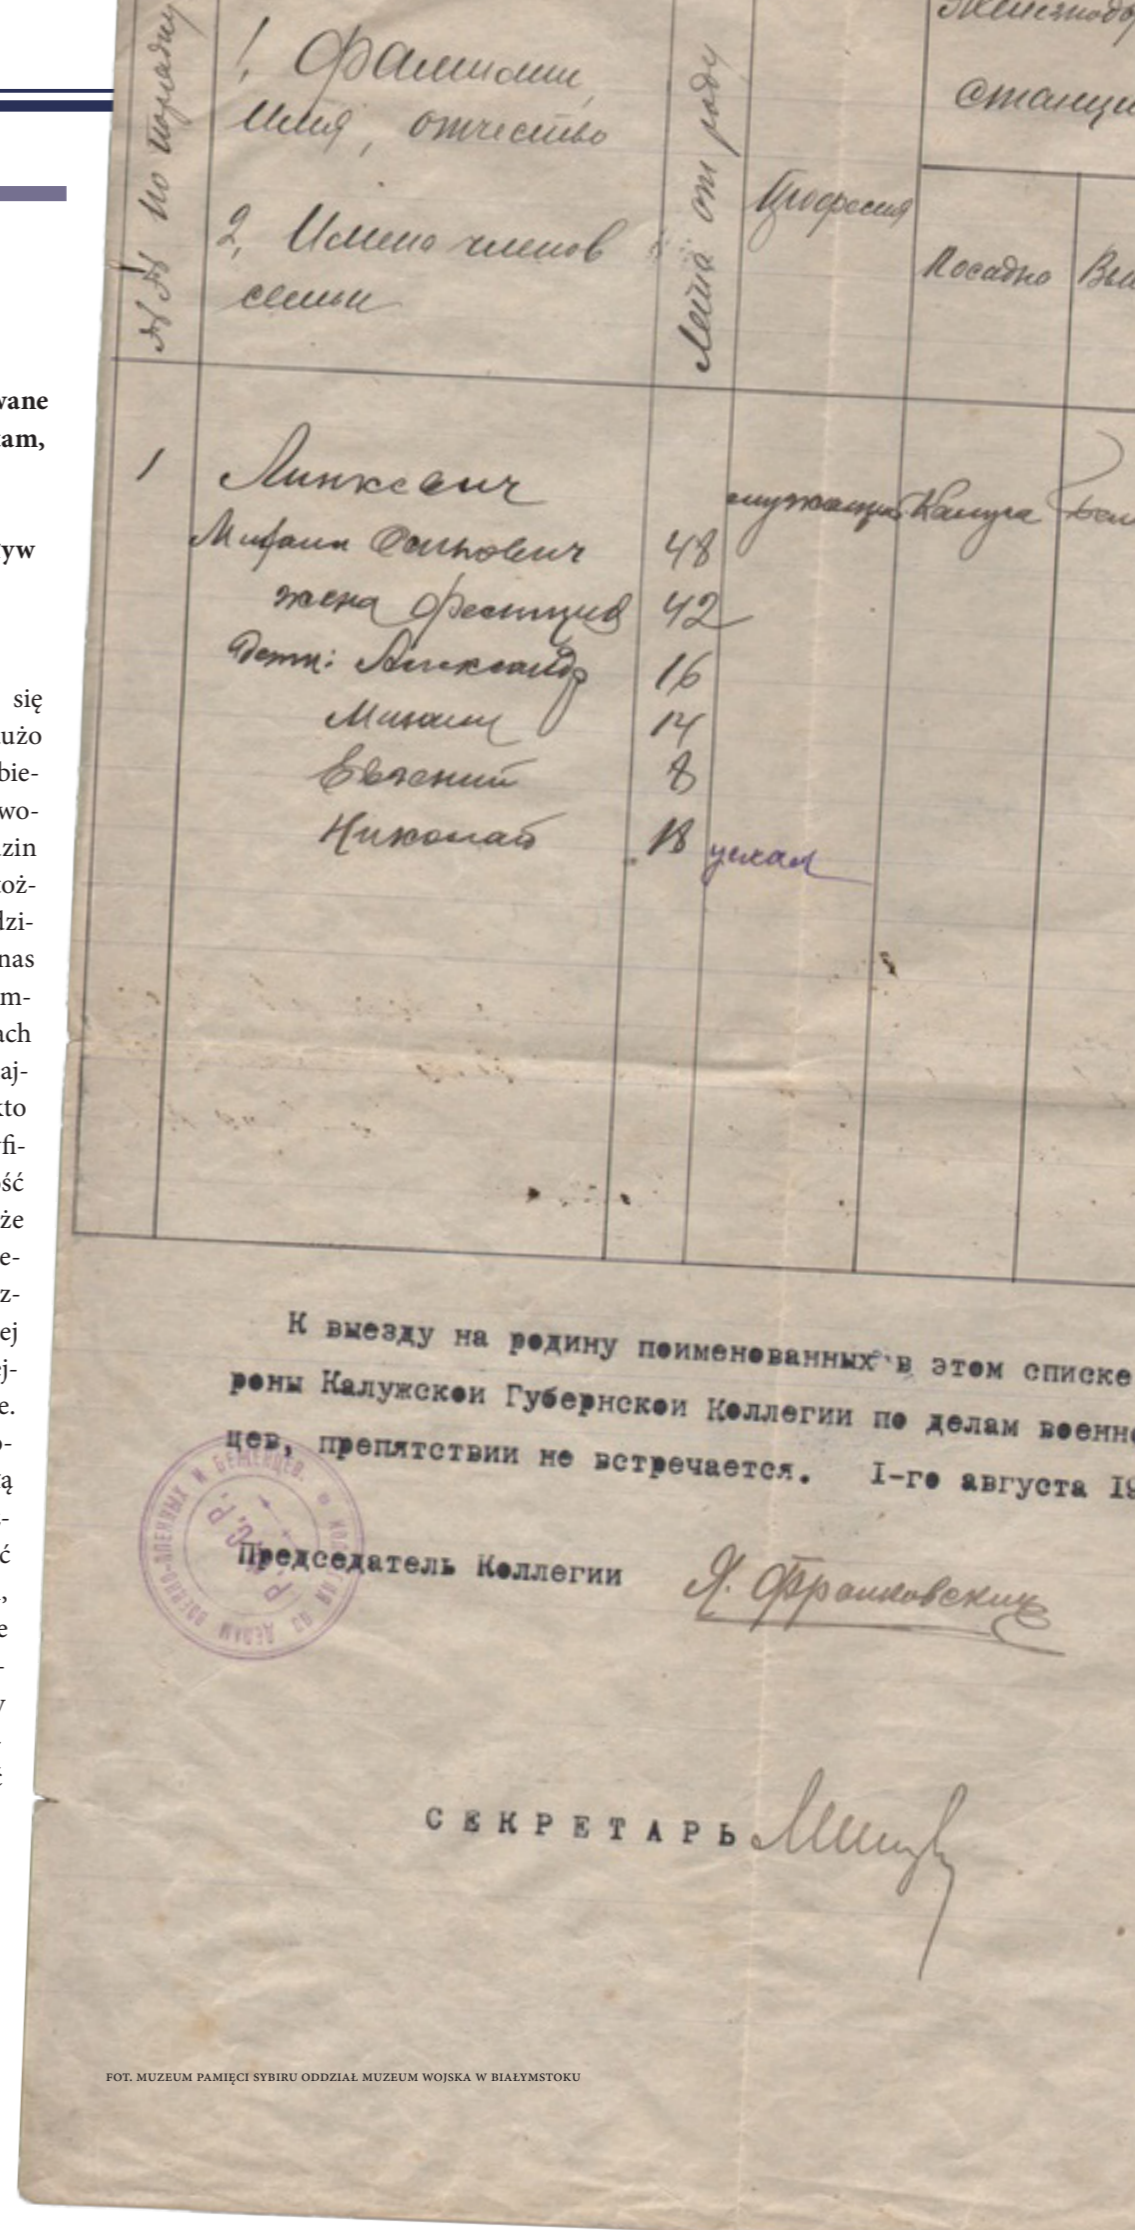 wane
tam,
yw
się
użo
bie-
wo-
zin
toż-
dzi-
nas
m-
ach
aj-
kto
fi-
ść
że
e-
z-
ej
j-
e.
o-
ą
-
ć
,
e
-
y
№№ по порядку
1. Фамилии,
Имя, отчество
2. Имено членов
семьи
Лета от роду
Професия
станци
Посадки
1
Линкевич
служащий
Калуга
Михаил Осипович
48
жена
42
дети: Александр
16
Михаил
14
Евгений
8
Николай
18
уехал
К выезду на родину поименованных в этом списке
роны Калужскои Губернскои Коллегии по делам военно
цев, препятствии не встречается. I-го августа 19
Председатель Коллегии
КОЛЛЕГИЯ ПО ДЕЛАМ ВОЕННО-ПЛЕННЫХ И БЕЖЕНЦЕВ.
СЕКРЕТАРЬ
FOT. MUZEUM PAMIĘCI SYBIRU ODDZIAŁ MUZEUM WOJSKA W BIAŁYMSTOKU